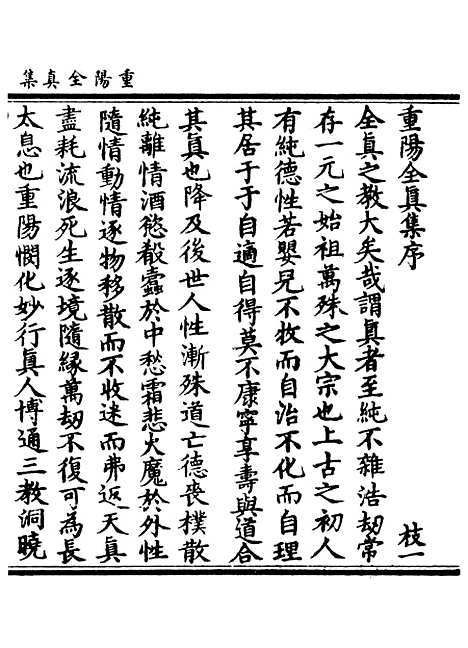 重陽全真集
重陽全眞集序 枝一
全眞之教大矣哉謂眞者至純不雜浩劫常
存一元之始祖萬殊之大宗也上古之初人
有純德性若嬰兒不牧而自治不化而自理
其居于于自適自得莫不康寧享壽與道合
其眞也降及後世人性漸殊道亡德喪樸散
純離情酒慾殽蠹於中愁霜悲火魔於外性
隨情動情逐物移散而不收迷而弗返天真
盡耗流浪死生逐境隨緣萬劫不復可為長
太息也重陽憫化妙行眞人博通三教洞曉